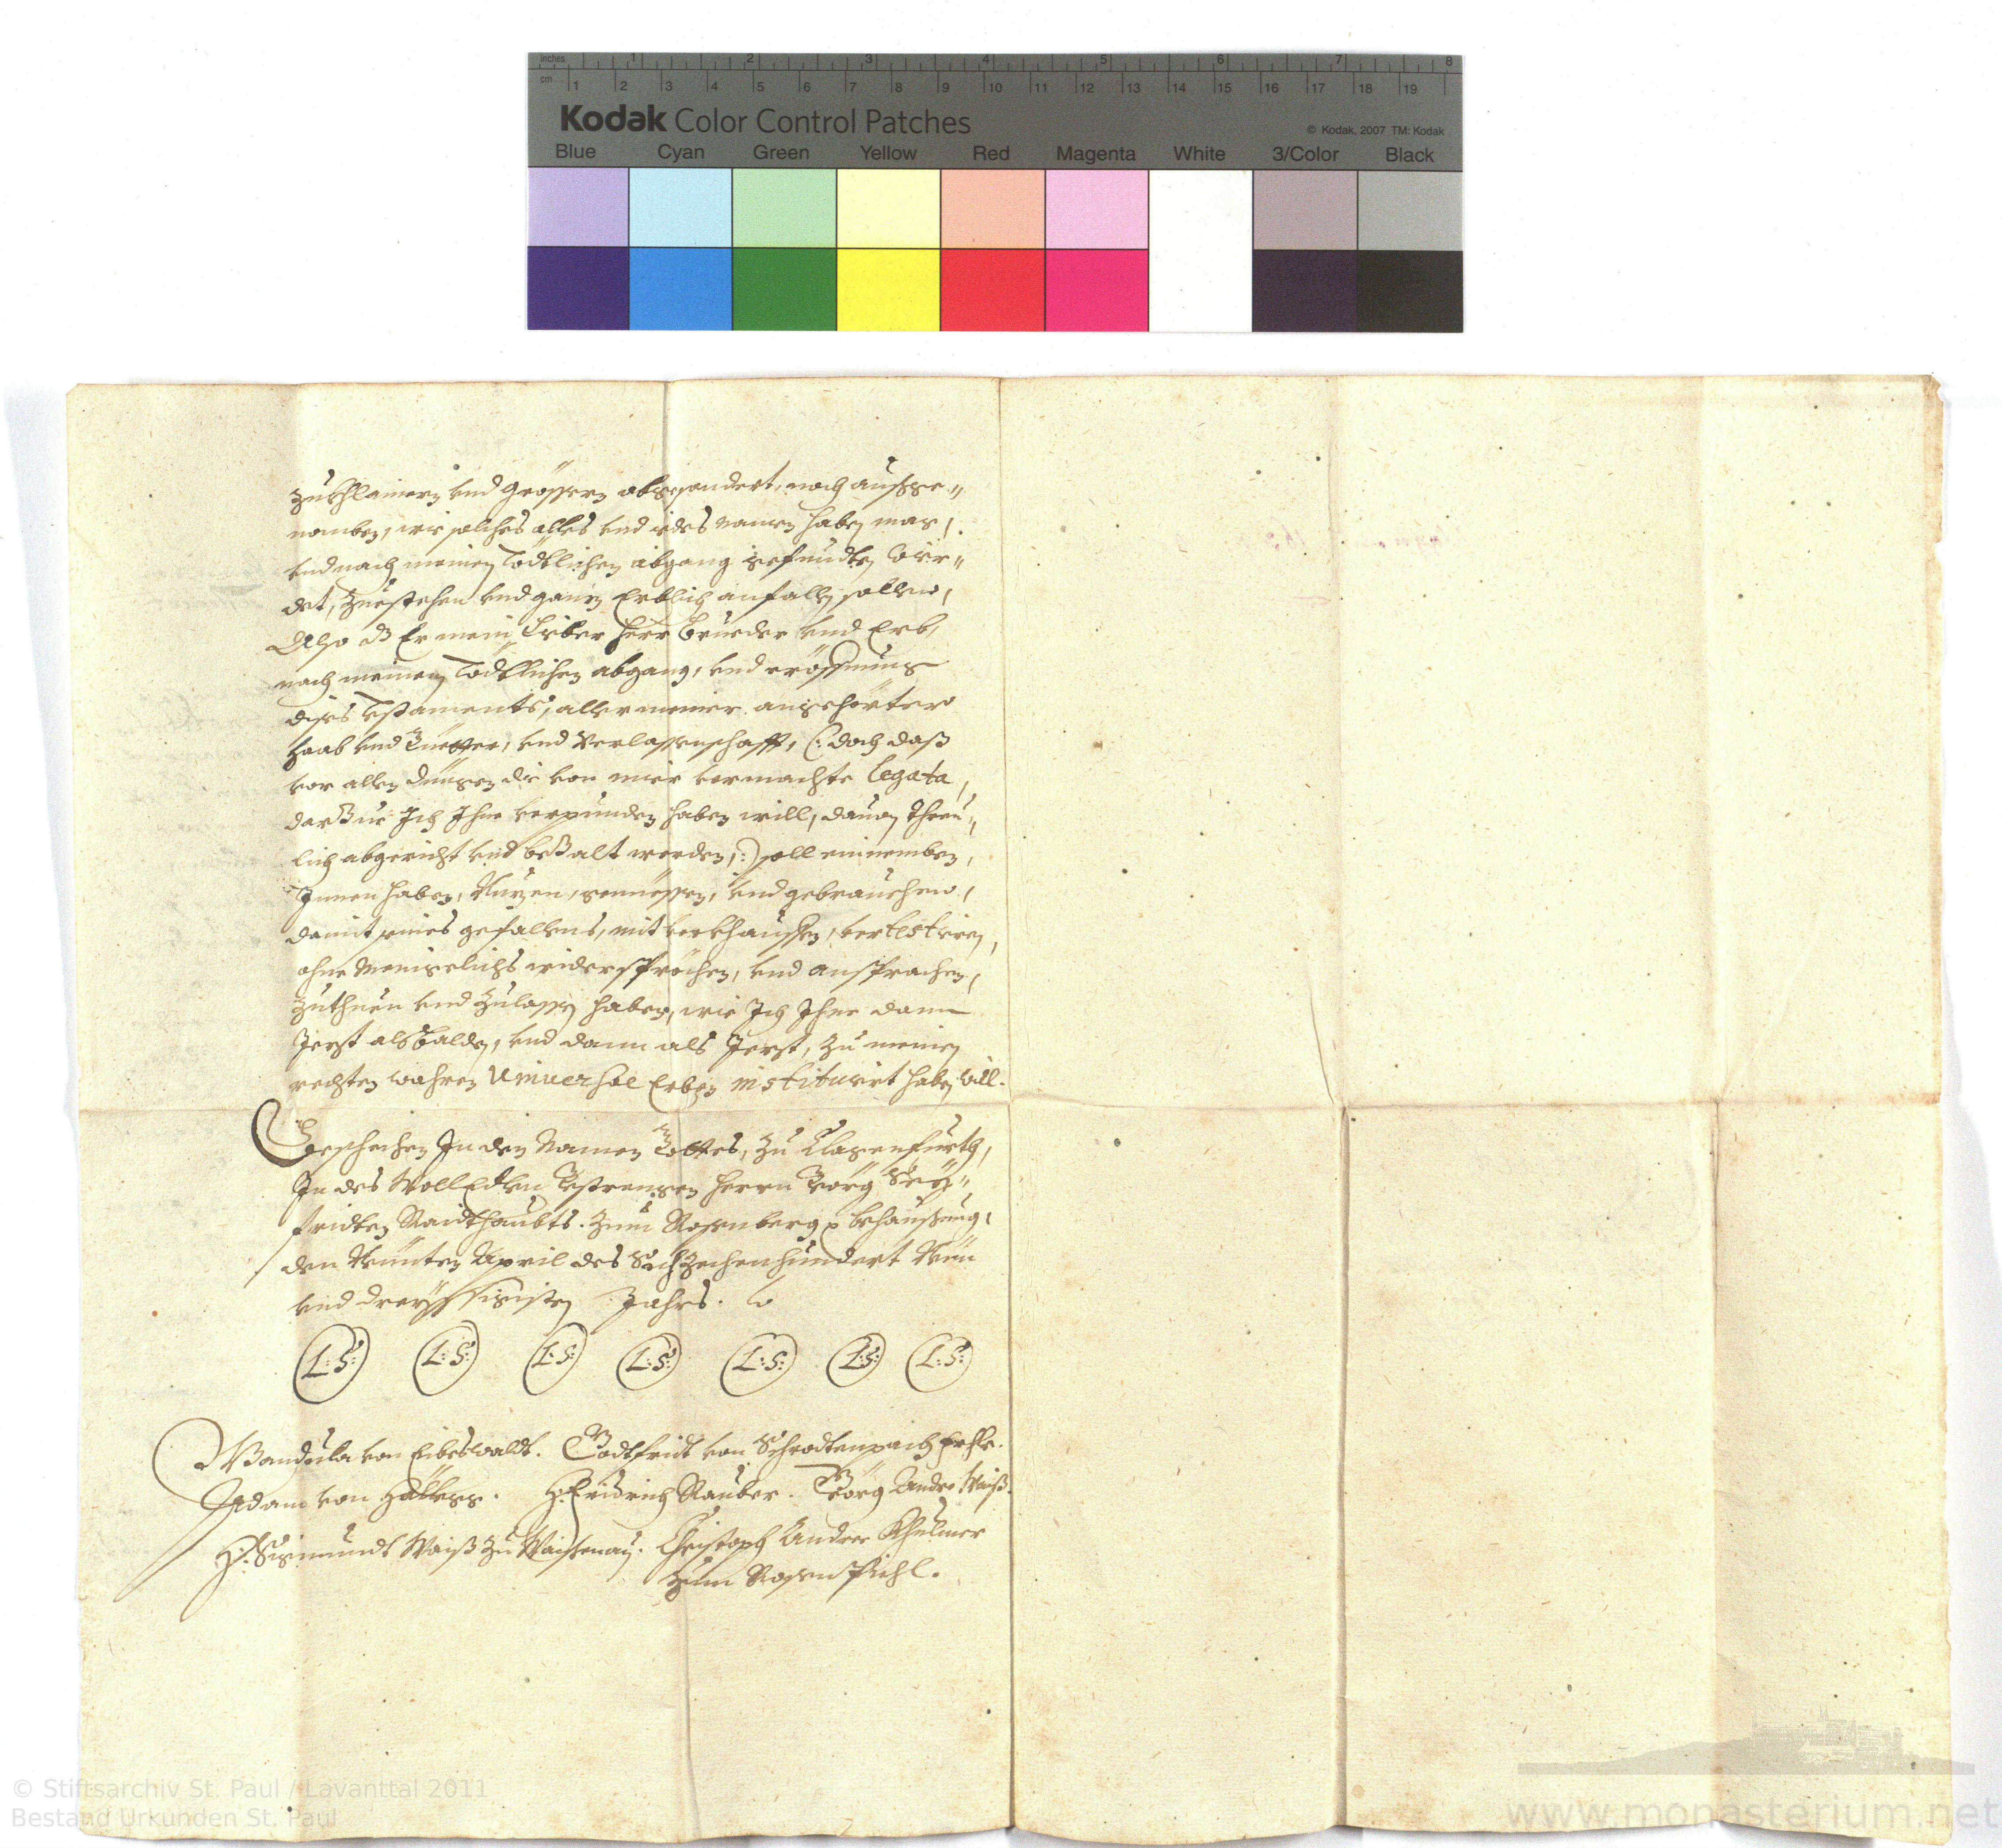 inches 1 2 3 4 5 6 7 8
cm 1 2 3 4 5 6 7 8 9 10 11 12 13 14 15 16 17 18 19
Kodak Color Control Patches
© Kodak, 2007 TM: Kodak
Blue Cyan Green Yellow Red Magenta White 3/Color Black
vnd grössern abgesondert, noch aussge„
nomben, wie solches alles vnd iedes namen haben mag,
vnd nach meinen Tödtlichen abgang gefundten wür„
det, zuestehen vnd gantz Erblich anfallen sollen,
Also dz Er mein lieber herr brueder vnd Erb,
nach meinen Tödtlichen abgang, vnd eröffnung
dises Testaments, aller meiner angehörter
Haab vnd Güetter, vnd Verlassenschafft, (: doch dass
vor allen dingen die von mier vermachte Legata,
darzue Ich Ihne verpunden haben will, dauon Threu„
lich abgericht vnd bezalt werden, :) soll einnemben,
Innen haben, Nuzen, geniessen, vnd gebrauchen,
damit seines gefallens, mit verkhauffen, vertestiern,
ohne Menigelichs widersprechen, vnd ansprachen,
zuthuen vnd zulassen haben, wie Ich Ihne dann
Jerzt als balden, vnd dann als Jerzt, zu meinen
rechten wahren Vniuersal Erben instituirt haben will.
Geschechen In den Namen Gottes, zu Clagenfurth,
In des WollEdlen Gestrengen Herrn Georg Sey„
fridten Raidthaubts. zum Rosenberg behaussung,
den Neunten April des Sechzechenhundert Neun
vnd dreyssigisten Jahrs.
L: S: L: S: L: S: L: S: L: S: L: S: L: S:
Wandula von Eibeswaldt. Godtfridt von Schrodtenpach Frhr.
Adam von H: Fridrich Rauber. Georg Andre Waiß.
H: Sigmundt Waiß zu Waissenau. Christoph Andree Khulmer
zum Rosen Pichl.
© Stiftsarchiv St. Paul / Lavanttal 2011
Bestand Urkunden St. Paul
www.monasterium.net